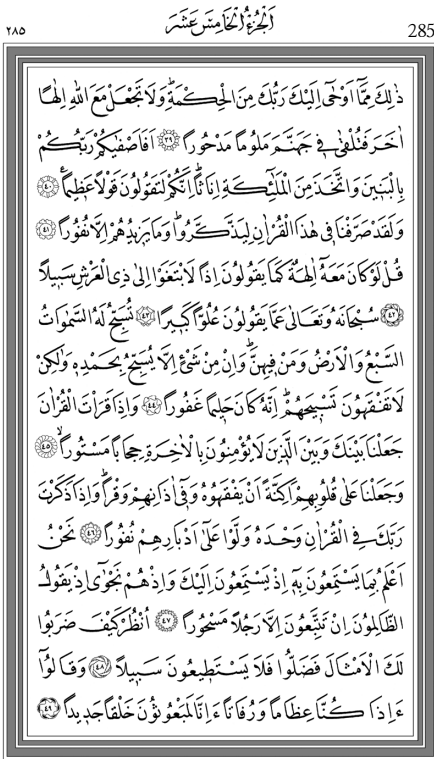 285
اَلْجُزْءُ الْخَامِسَ عَشَرَ
٢٨٥
ذٰلِكَ مِمَّٓا اَوْحٰٓى اِلَيْكَ رَبُّكَ مِنَ الْحِكْمَةِۜ وَلَا تَجْعَلْ مَعَ اللّٰهِ اِلٰهًا
اٰخَرَ فَتُلْقٰى ف۪ي جَهَنَّمَ مَلُومًا مَدْحُورًا ﴿٣٩﴾ اَفَاَصْفٰيكُمْ رَبُّكُمْ
بِالْبَن۪ينَ وَاتَّخَذَ مِنَ الْمَلٰٓئِكَةِ اِنَاثًاۜ اِنَّكُمْ لَتَقُولُونَ قَوْلًا عَظ۪يمًا۟ ﴿٤٠﴾
وَلَقَدْ صَرَّفْنَا ف۪ي هٰذَا الْقُرْاٰنِ لِيَذَّكَّرُواۜ وَمَا يَز۪يدُهُمْ اِلَّا نُفُورًا ﴿٤١﴾
قُلْ لَوْ كَانَ مَعَهُٓ اٰلِهَةٌ كَمَا يَقُولُونَ اِذًا لَابْتَغَوْا اِلٰى ذِي الْعَرْشِ سَب۪يلًا
﴿٤٢﴾ سُبْحَانَهُ وَتَعَالٰى عَمَّا يَقُولُونَ عُلُوًّا كَب۪يرًا ﴿٤٣﴾ تُسَبِّحُ لَهُ السَّمٰوَاتُ
السَّبْعُ وَالْاَرْضُ وَمَنْ ف۪يهِنَّۜ وَاِنْ مِنْ شَيْءٍ اِلَّا يُسَبِّحُ بِحَمْدِه۪ وَلٰكِنْ
لَا تَفْقَهُونَ تَسْب۪يحَهُمْۜ اِنَّهُ كَانَ حَل۪يمًا غَفُورًا ﴿٤٤﴾ وَاِذَا قَرَأْتَ الْقُرْاٰنَ
جَعَلْنَا بَيْنَكَ وَبَيْنَ الَّذ۪ينَ لَا يُؤْمِنُونَ بِالْاٰخِرَةِ حِجَابًا مَسْتُورًاۙ ﴿٤٥﴾
وَجَعَلْنَا عَلٰى قُلُوبِهِمْ اَكِنَّةً اَنْ يَفْقَهُوهُ وَف۪ٓي اٰذَانِهِمْ وَقْرًاۜ وَاِذَا ذَكَرْتَ
رَبَّكَ فِي الْقُرْاٰنِ وَحْدَهُ وَلَّوْا عَلٰٓى اَدْبَارِهِمْ نُفُورًا ﴿٤٦﴾ نَحْنُ
اَعْلَمُ بِمَا يَسْتَمِعُونَ بِه۪ٓ اِذْ يَسْتَمِعُونَ اِلَيْكَ وَاِذْ هُمْ نَجْوٰٓى اِذْ يَقُولُ
الظَّالِمُونَ اِنْ تَتَّبِعُونَ اِلَّا رَجُلًا مَسْحُورًا ﴿٤٧﴾ اُنْظُرْ كَيْفَ ضَرَبُوا
لَكَ الْاَمْثَالَ فَضَلُّوا فَلَا يَسْتَط۪يعُونَ سَب۪يلًا ﴿٤٨﴾ وَقَالُٓوا
ءَاِذَا كُنَّا عِظَامًا وَرُفَاتًا ءَاِنَّا لَمَبْعُوثُونَ خَلْقًا جَد۪يدًا ﴿٤٩﴾